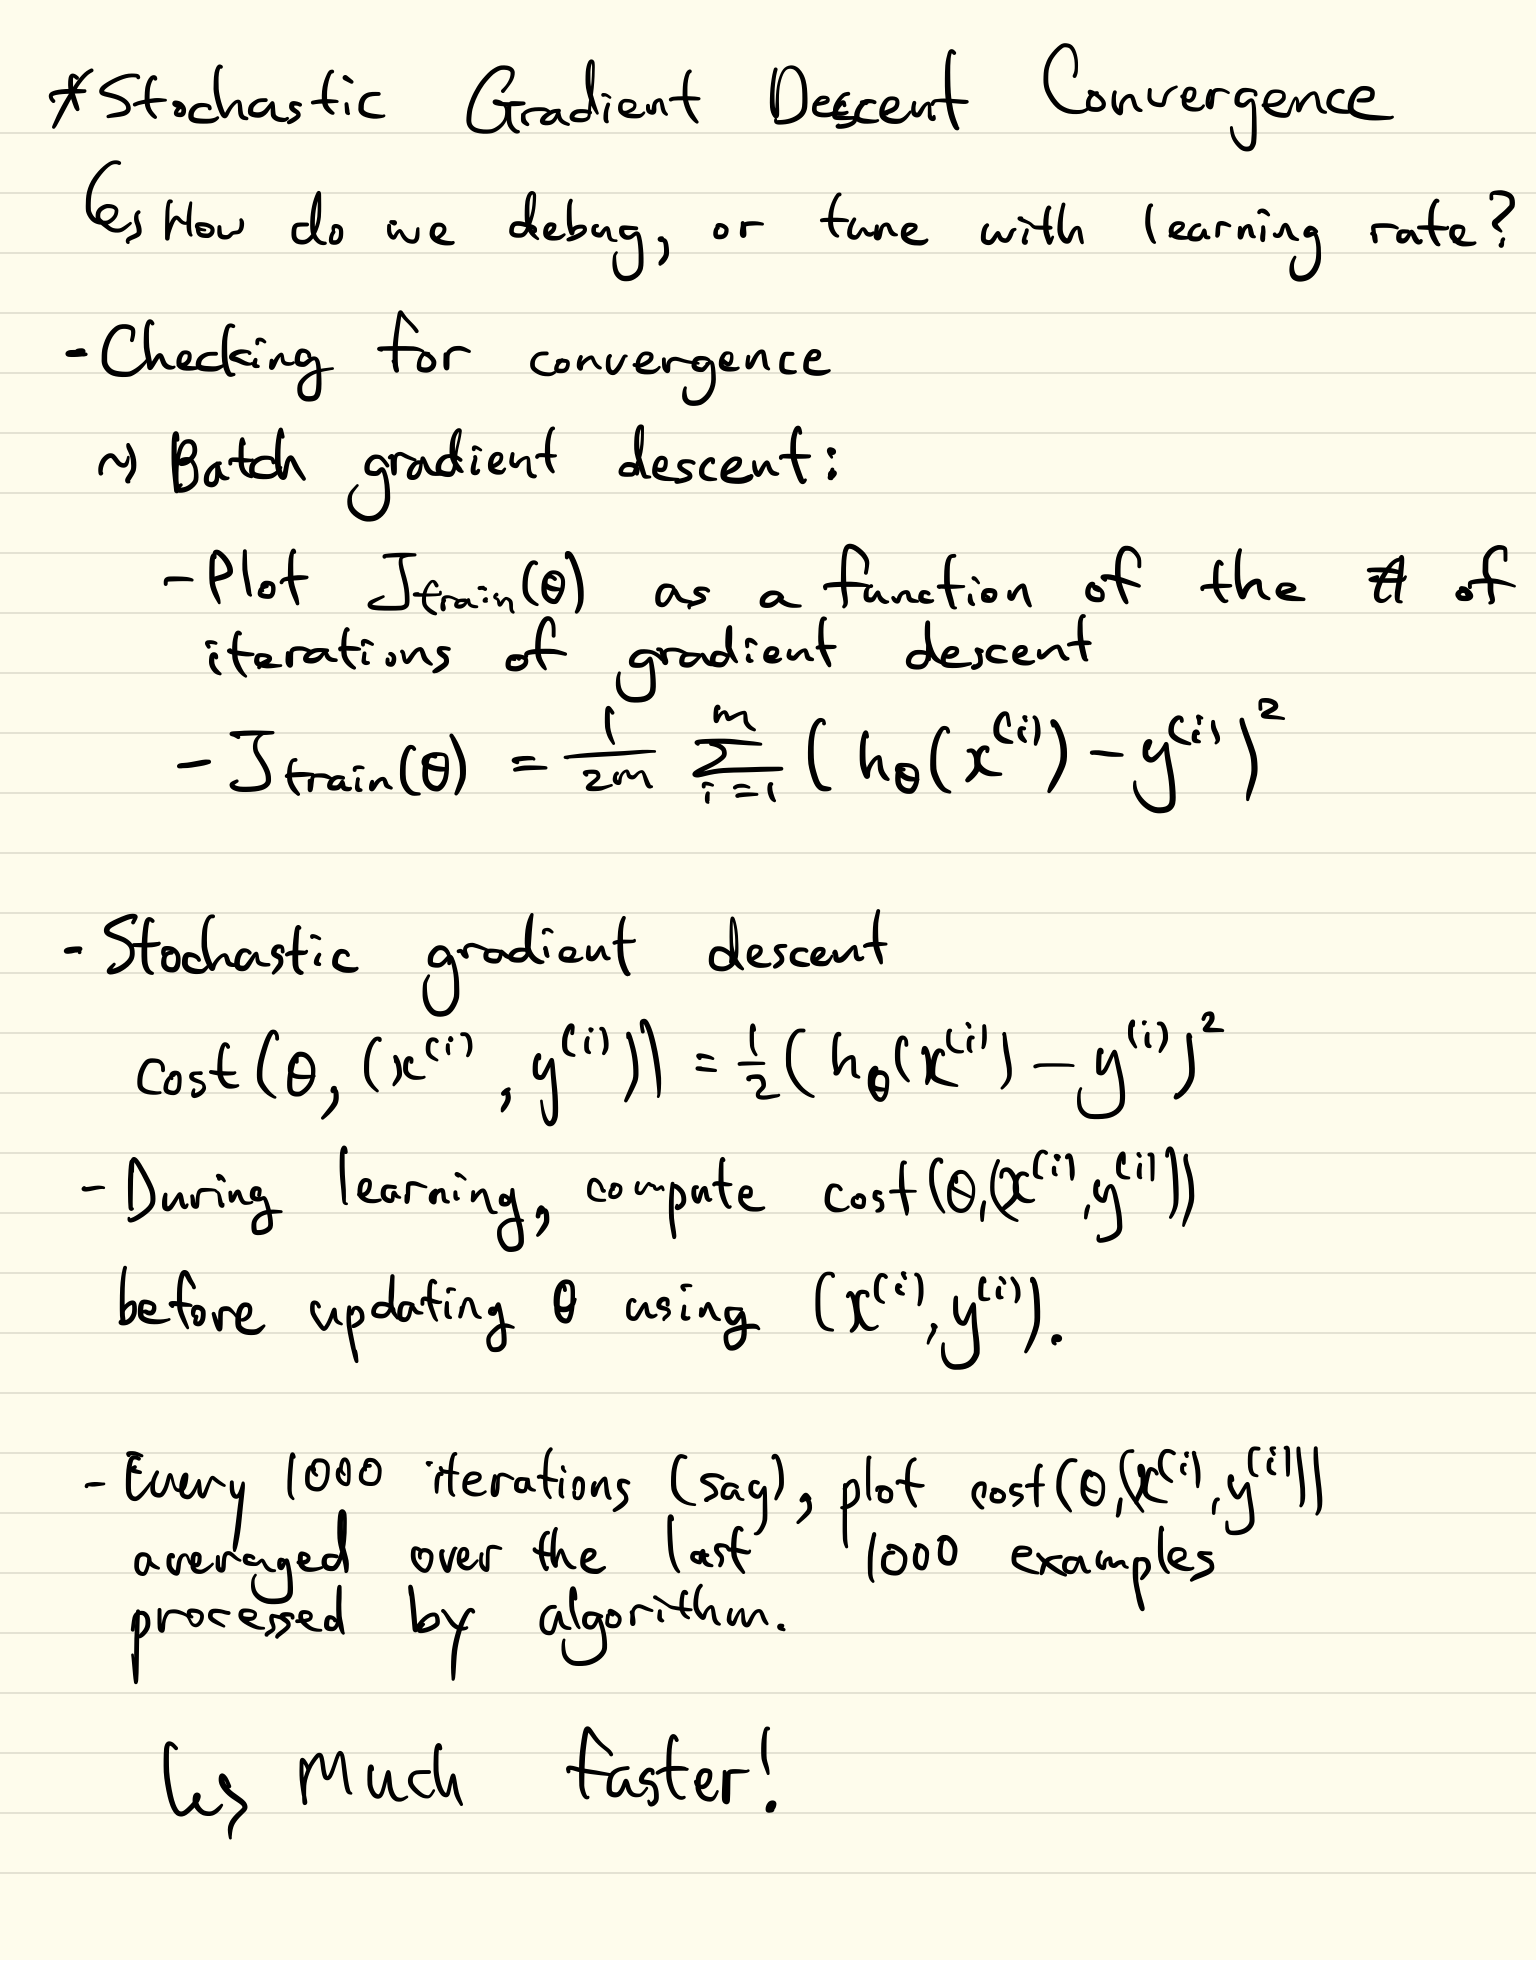 *Stochastic Gradient Descent Convergence
↳ How do we debug, or tune with learning rate?
- Checking for convergence
~) Batch gradient descent:
- Plot J_train(θ) as a function of the # of
iterations of gradient descent
- J_train(θ) = 1/2m Σ_{i=1}^{m} (h_θ(x^(i)) - y^(i))²
- Stochastic gradient descent
cost(θ, (x^(i), y^(i))) = 1/2 (h_θ(x^(i)) - y^(i))²
- During learning, compute cost(θ,(x^(i),y^(i)))
before updating θ using (x^(i),y^(i)).
- Every 1000 iterations (say), plot cost(θ,(x^(i),y^(i)))
averaged over the last 1000 examples
processed by algorithm.
↳ Much faster!